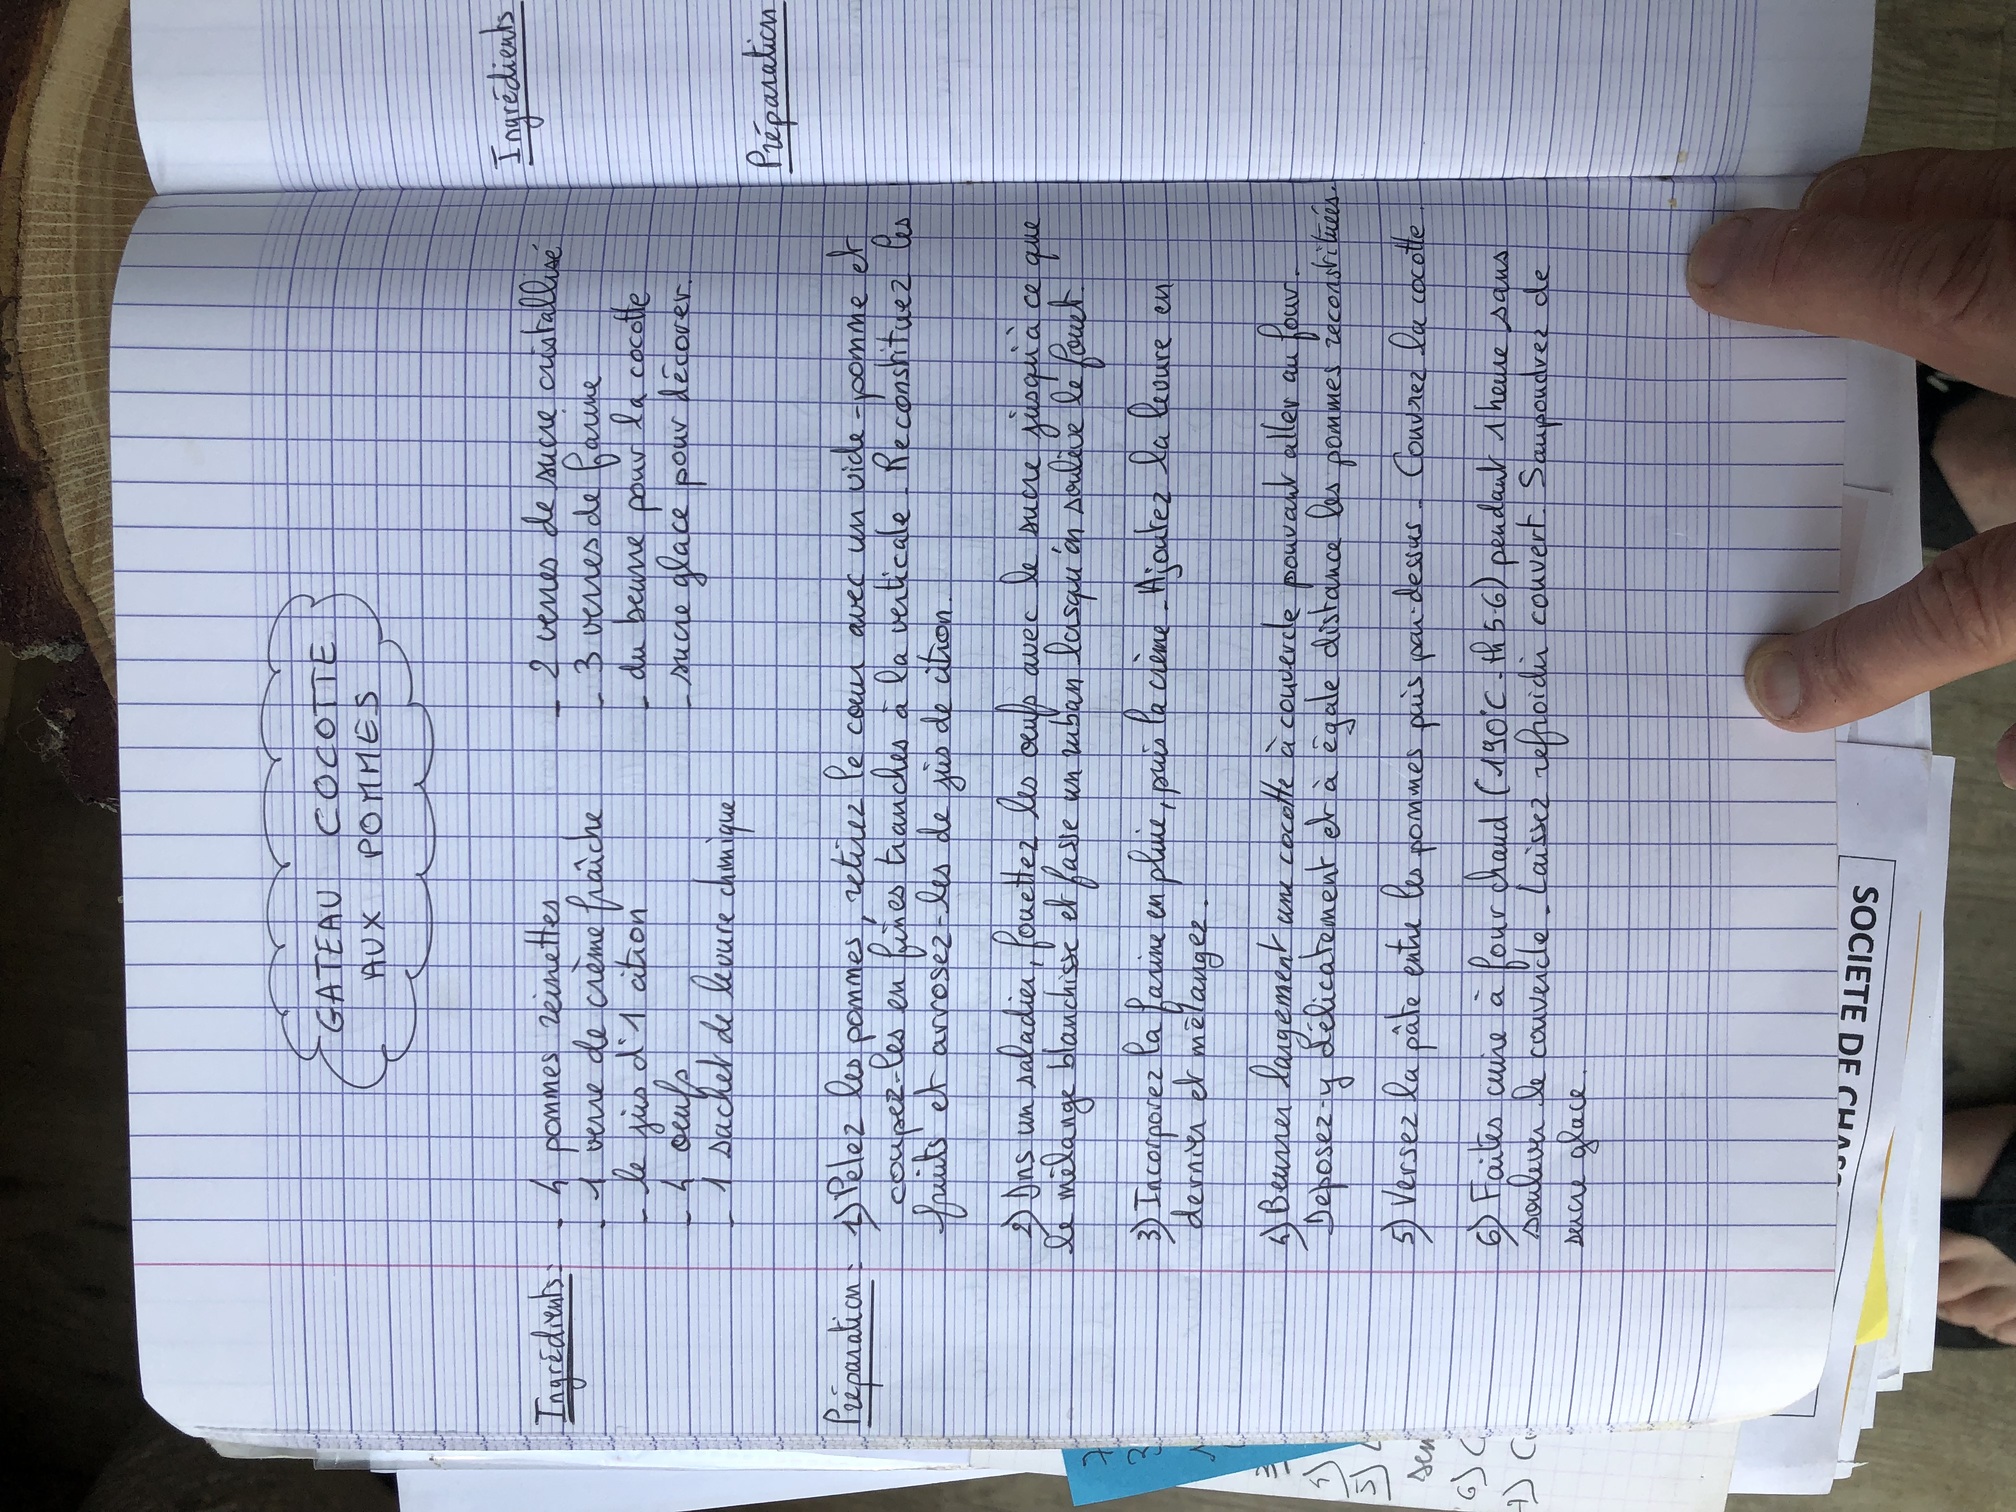 GATEAU COCOTTE
AUX POMMES
Ingrédients:
- 4 pommes reinettes
- 1 verre de crème fraîche
- le jus d'1 citron
- 4 oeufs
- 1 sachet de levure chimique
- 2 verres de sucre cristallisé
- 3 verres de farine
- du beurre pour la cocotte
- sucre glace pour décorer.
Préparation:
1) Pelez les pommes, retirez le cœur avec un vide-pomme et
coupez-les en fines tranches à la verticale. Reconstituez les
fruits et arrosez-les de jus de citron.
2) Dns un saladier, fouettez les oeufs avec le sucre jusqu'à ce que
le mélange blanchisse et fasse un ruban lorsqu'on soulève le fouet.
3) Incorporez la farine en pluie, puis la crème. Ajoutez la levure en
dernier et mélangez.
4) Beurrer largement une cocotte à couvercle pouvant aller au four.
Deposez-y délicatement et à égale distance les pommes reconstituées.
5) Versez la pâte entre les pommes puis par-dessus. Couvrez la cocotte.
6) Faites cuire à four chaud (190°C - th 5-6) pendant 1 heure sans
soulever le couvercle. Laissez refroidir couvert. Saupoudrez de
sucre glace.
Ingrédients
Préparation
SOCIETE DE